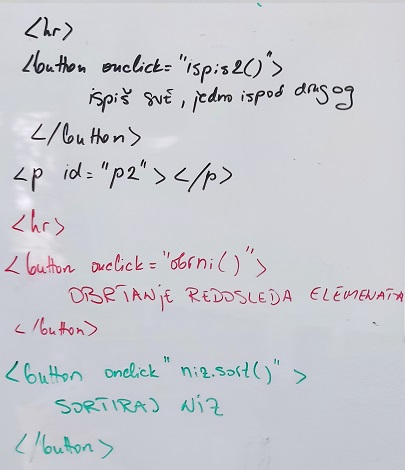 <hr>
<button onclick="ispis2()">
ispiš svě, jedno ispod drugog
</button>
<p id="p2"></p>
<hr>
<button onclick="obrni()">
OBRTANJE REDOSLEDA ELEMENATA
</button>
<button onclick" niz.sort()">
SORTIRAJ NIZ
</button>